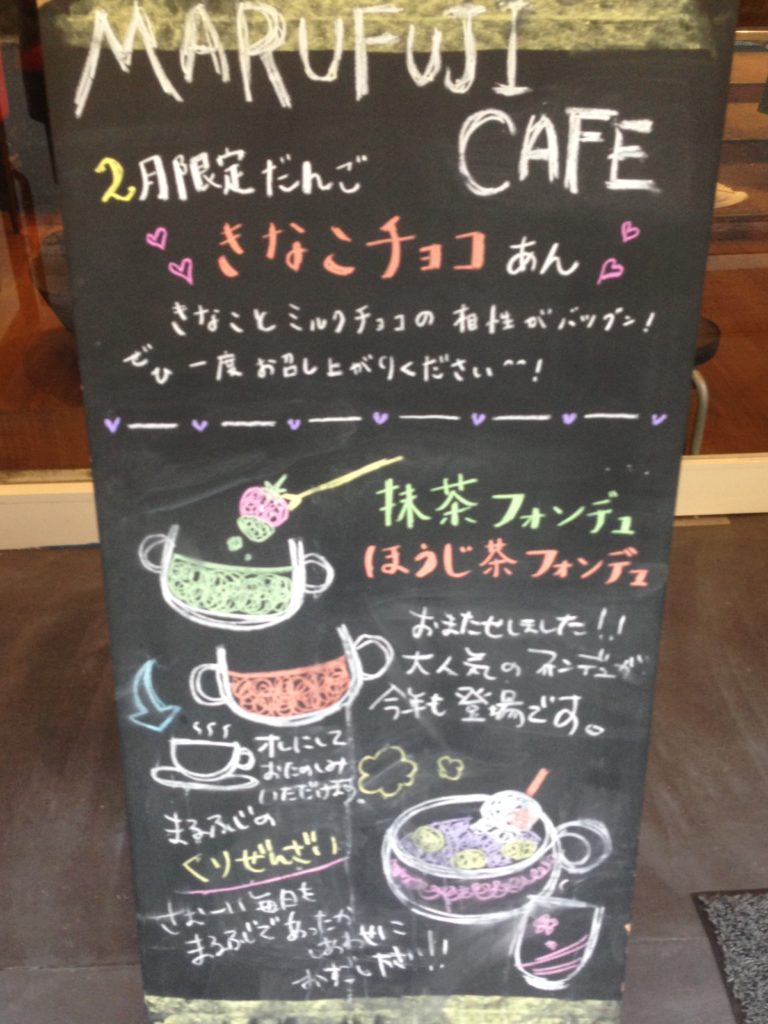 MARUFUJI
CAFE
2月限定だんご
きなこチョコあん
きなことミルクチョコの相性がバツグン!
ぜひ一度お召し上がりください^^!
抹茶フォンデュ
ほうじ茶フォンデュ
おまたせしました!!
大人気のフォンデュが
今年も登場です。
オレにして
おたのしみ
いただけます。
まるふじの
くりぜんざい
さむーい毎日も
まるふじであったか
しあわせに
おすごし下さい!!